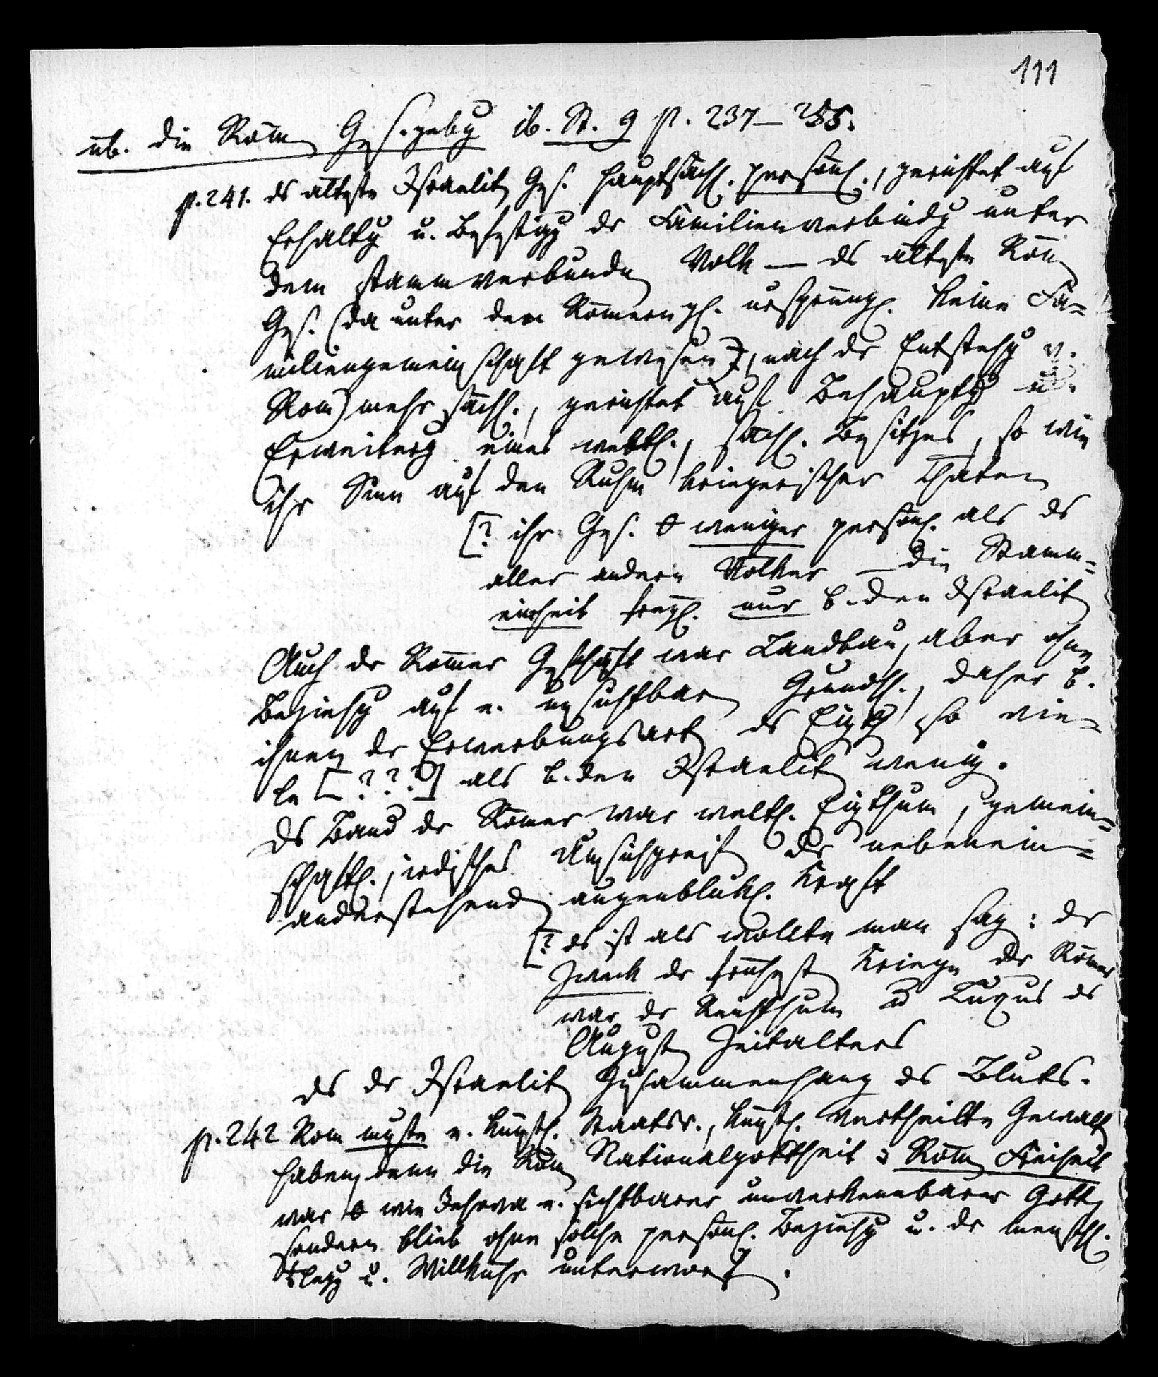 111
üb. die Röm Gesezgebg ib. St. 9 p. 237–255.
p. 241. ds älteste Israelit Ges. hauptsächl. persönl., gerichtet auf
Erhaltg u. Befestigg dr Familienverbindg unter
dem stammverbunden Volk — ds älteste Röm
Ges. (da unter den Römern gl. ursprüngl. keine Fa=
miliengemeinschaft gewesen), nach dr Entstehg v.
Rom) mehr sächl., gerichtet auf Behauptg u.
Erweiterg eines weltl., sächl. Besitzes, so wie
ihr Sinn auf den Ruhm kriegerischer Thaten
[? ihr Ges. 0 weniger persönl. als ds
aller andern Völker — die Stamm=
einheit frgl. nur b. den Israelit
Auch dr Römer Geschäft war Landbau, aber ohne
Beziehg auf e. unsichtbaren Grundh., daher b.
ihnen dr Erwerbungsart ds Eigth so vie=
le [???] als b. den Israelit wenig.
Ds Band dr Römer war weltl. Eigthum, gemein=
schaftl., irdisches Umsichgreifen dr nebenein=
anderstehend augenblickl. Kraft
[? ds ist als wollte man sag: dr
Zweck dr frühest Kriege dr Römer
war dr Reichthum u Luxus ds
August Zeitalters
ds dr Israelit Zusammenhang ds Bluts.
p. 242 Rom mußte e. künstl. Staatsv., künstl. vertheilte Gewalt
haben, denn die Röm Nationalgottheit : Röm Freiheit
war 0 wie Jehova e. sichtbarer unverkennbarer Gott
sondern blieb ohne solche persönl. Beziehg u. dr menschl.
u. Willkühr unterworf.